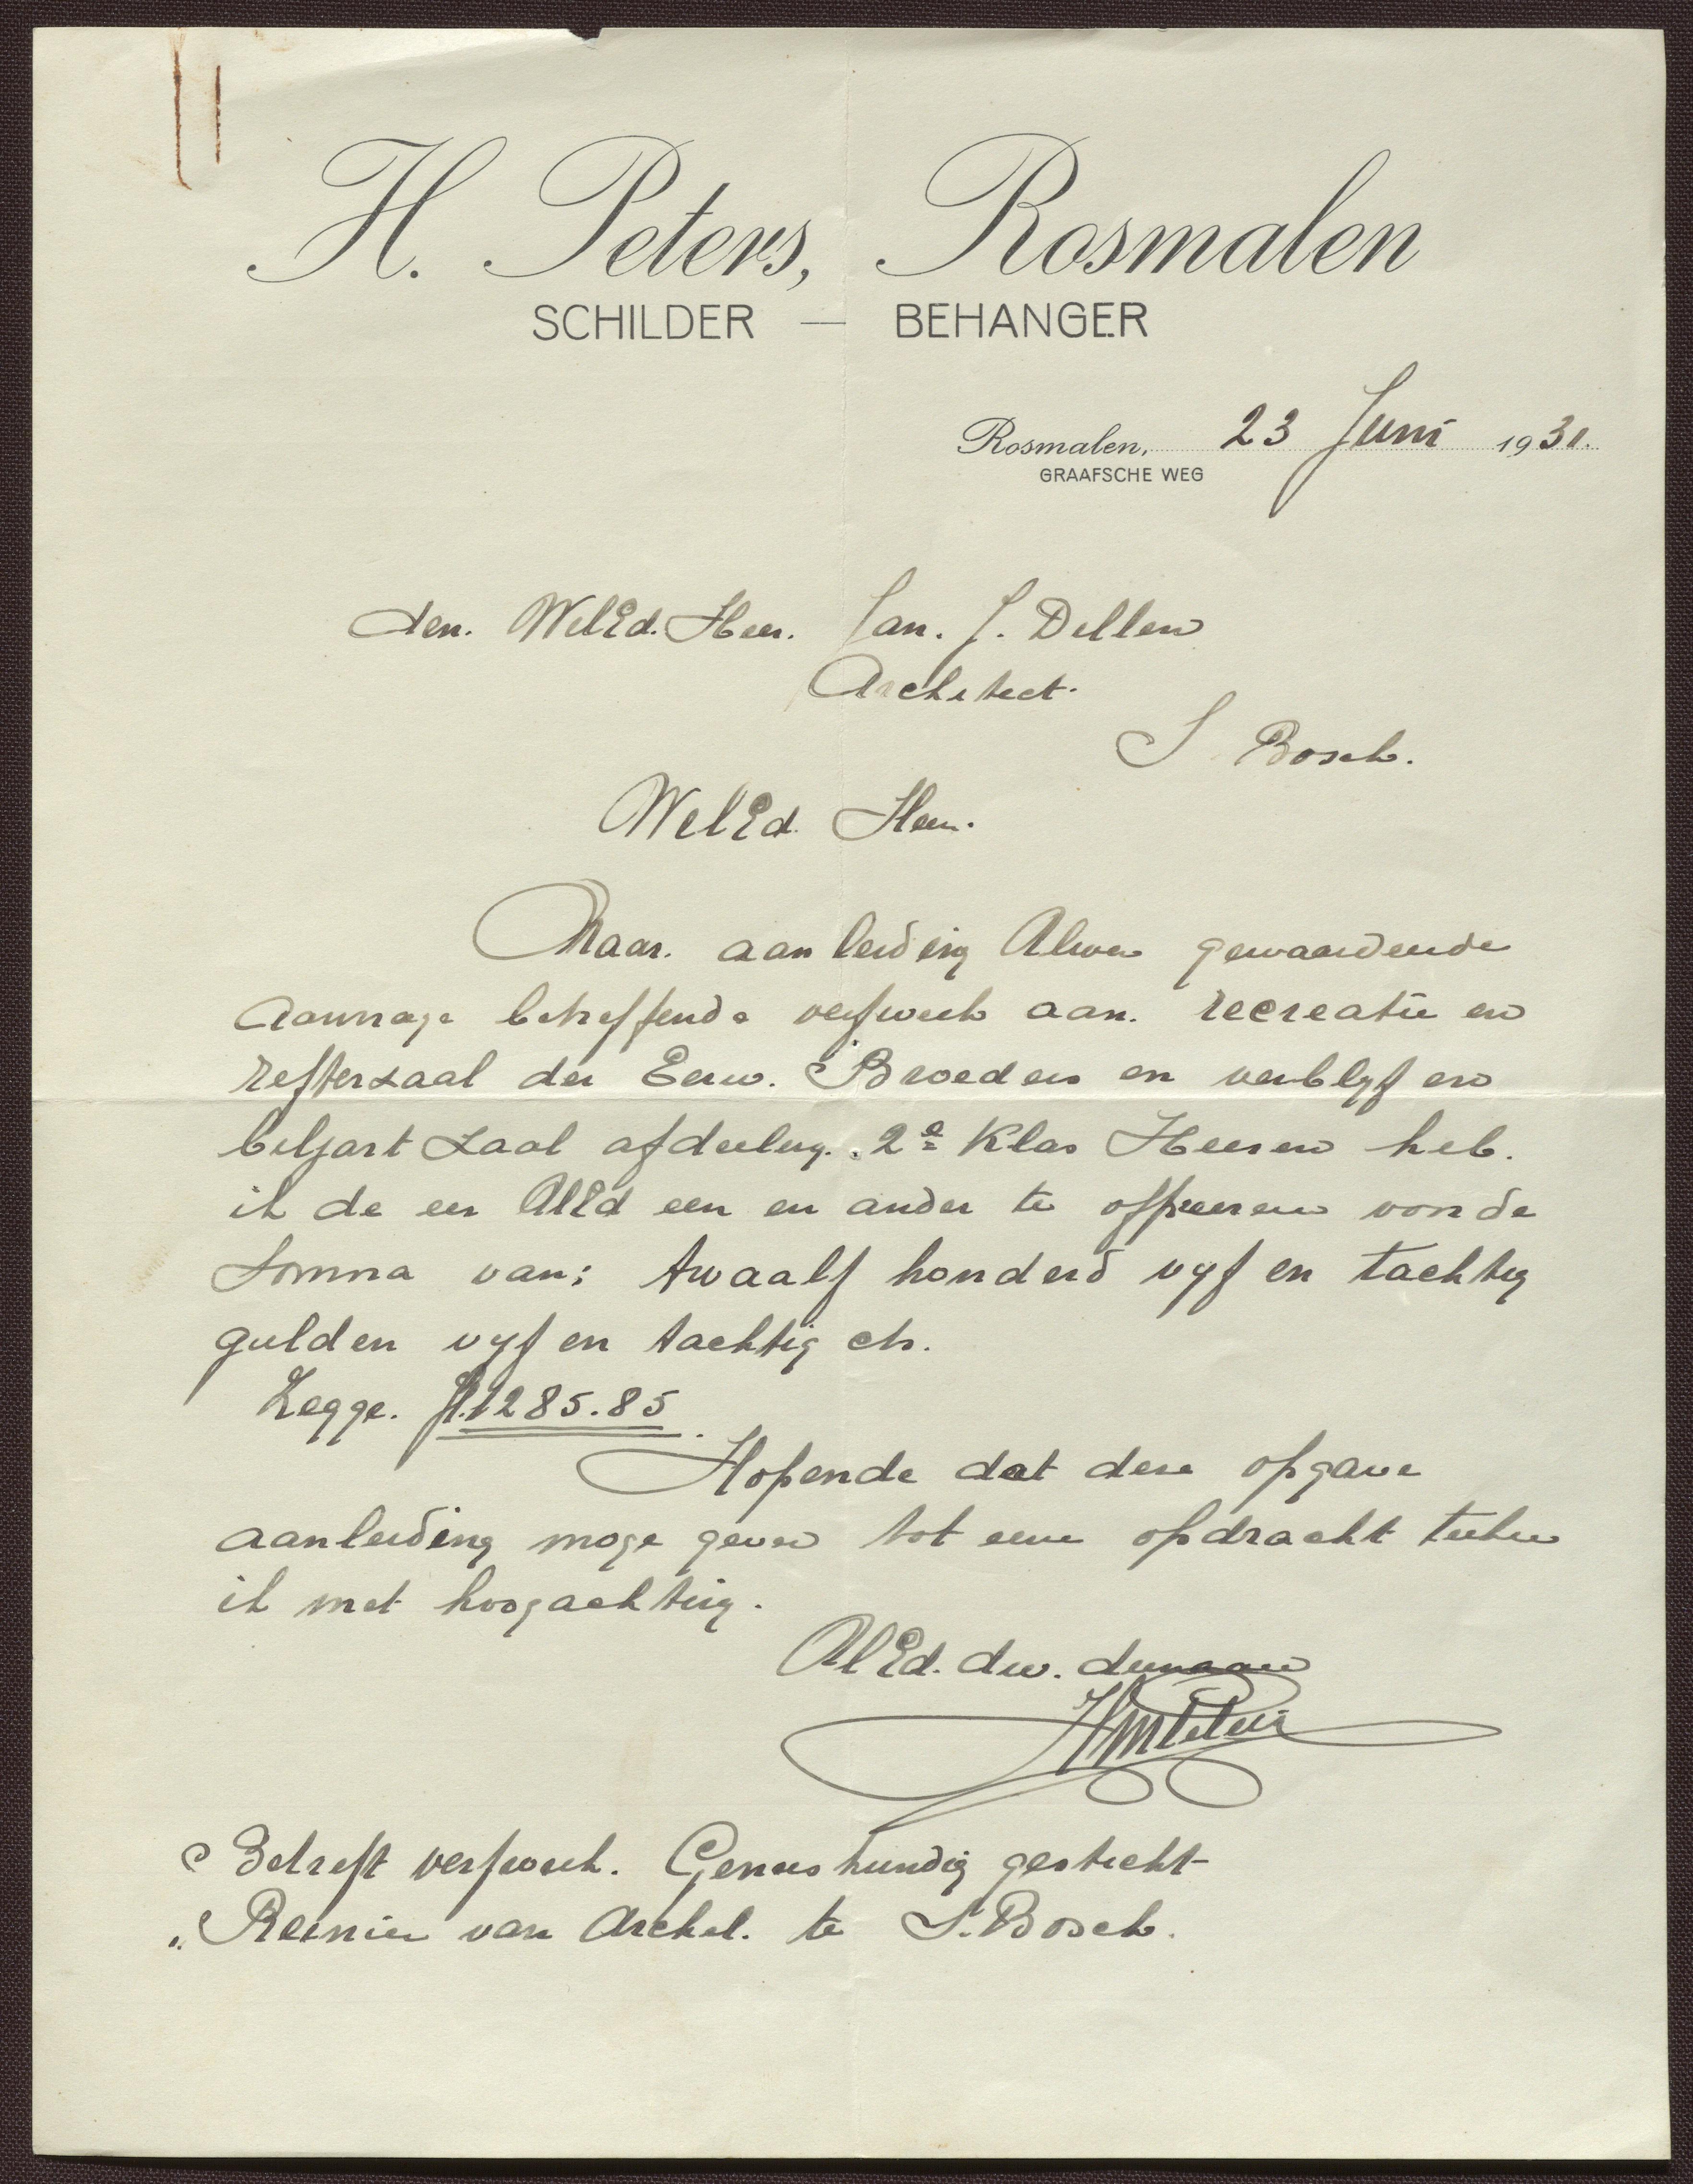 H. Peters, Rosmalen
SCHILDER — BEHANGER
Rosmalen, 23 Juni 1931.
GRAAFSCHE WEG
den. WelEd. Heer. Jan. J. Dellen
Architect.
S Bosch.
WelEd. Heer.
Naar. aanleiding Uwer gewaardeerde
aanvrage betreffende verfwerk aan. recreatie en
refterzaal der Eerw. Broeders en verblyf en
biljart zaal afdeeling. 2e Klas Heeren heb.
ik de eer UEd een en ander te offreeren voor de
somma van; twaalf honderd vyf en tachtig
gulden vyf en tachtig cts.
Zegge. fl. 1285.85.
Hopende dat deze opgave
aanleiding moge geven tot eene opdracht teeken
ik met hoogachting.
UEd. dw. dienaar
HMPeters
Betreft verfwerk. Geneeskundig gesticht
„Reinier van Arckel. te S. Bosch.